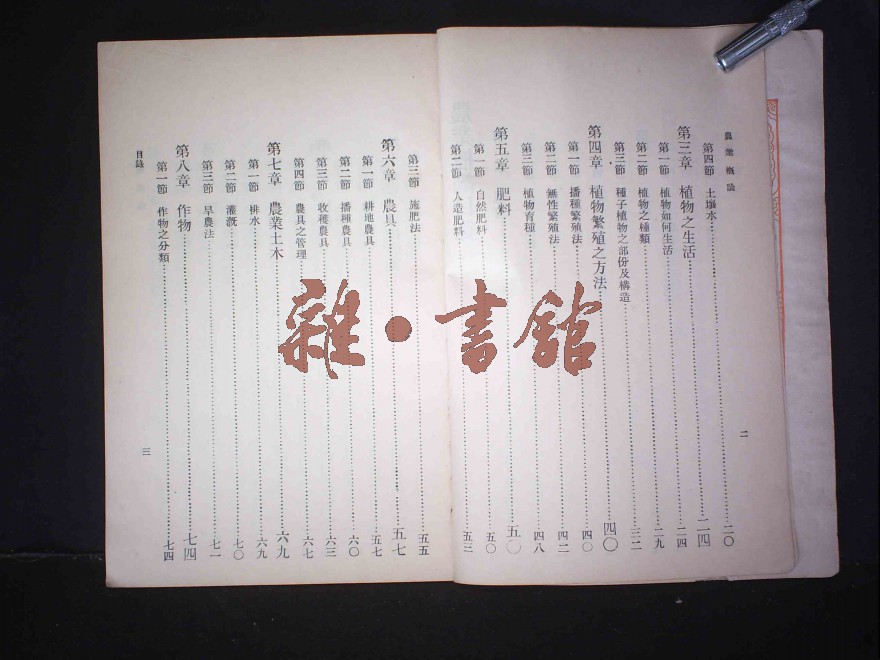 農業概論
第四節 土壤水 二〇
第三章 植物之生活 二四
第一節 植物如何生活 二四
第二節 植物之種類 二九
第三節 種子植物之部份及構造 三二
第四章 植物繁殖之方法 四〇
第一節 播種繁殖法 四〇
第二節 無性繁殖法 四二
第三節 植物育種 四八
第五章 肥料 五〇
第一節 自然肥料 五〇
第二節 人造肥料 五三
二
第三節 施肥法 五五
第六章 農具 五七
第一節 耕地農具 五七
第二節 播種農具 六〇
第三節 收穫農具 六三
第四節 農具之管理 六七
第七章 農業土木 六九
第一節 排水 六九
第二節 灌漑 七〇
第三節 旱農法 七一
第八章 作物 七四
第一節 作物之分類 七四
目錄
三
雜·書館